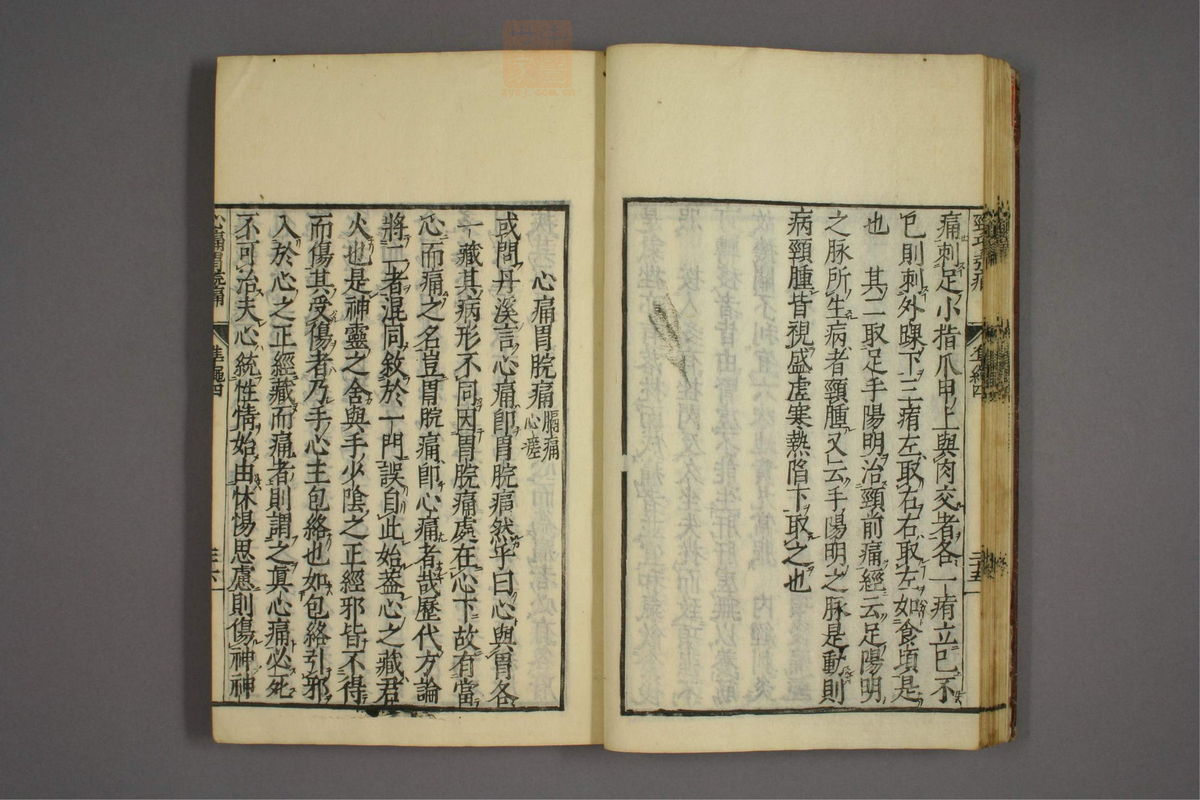 痛刺足小指爪甲上與肉交者各一痏立已不
已則刺外踝下三痏左取右右取左如食頃是
也　其二取足手陽明治頸前痛經云足陽明
之脉所生病者頸腫又云手陽明之脉是動則
病頸腫皆視盛虛寒熱陷下取之也
心痛胃脘痛 膈痛 心瘗
或問丹溪言心痛卽胃脘痛然乎曰心與胃各
一藏其病形不同因胃脘痛處在心下故有當
心而痛之名豈胃脘痛卽心痛者哉歷代方論
將二者混同敘於一門誤自此始葢心之藏君
火也是神靈之舍與手少陰之正經邪皆不得
而傷其受傷者乃手心主包絡也如包絡引邪
入於心之正經藏而痛者則謂之眞心痛必死
不可治夫心統性情始由怵惕思慮則傷神神
心痛胃脘痛 準繩四 三六